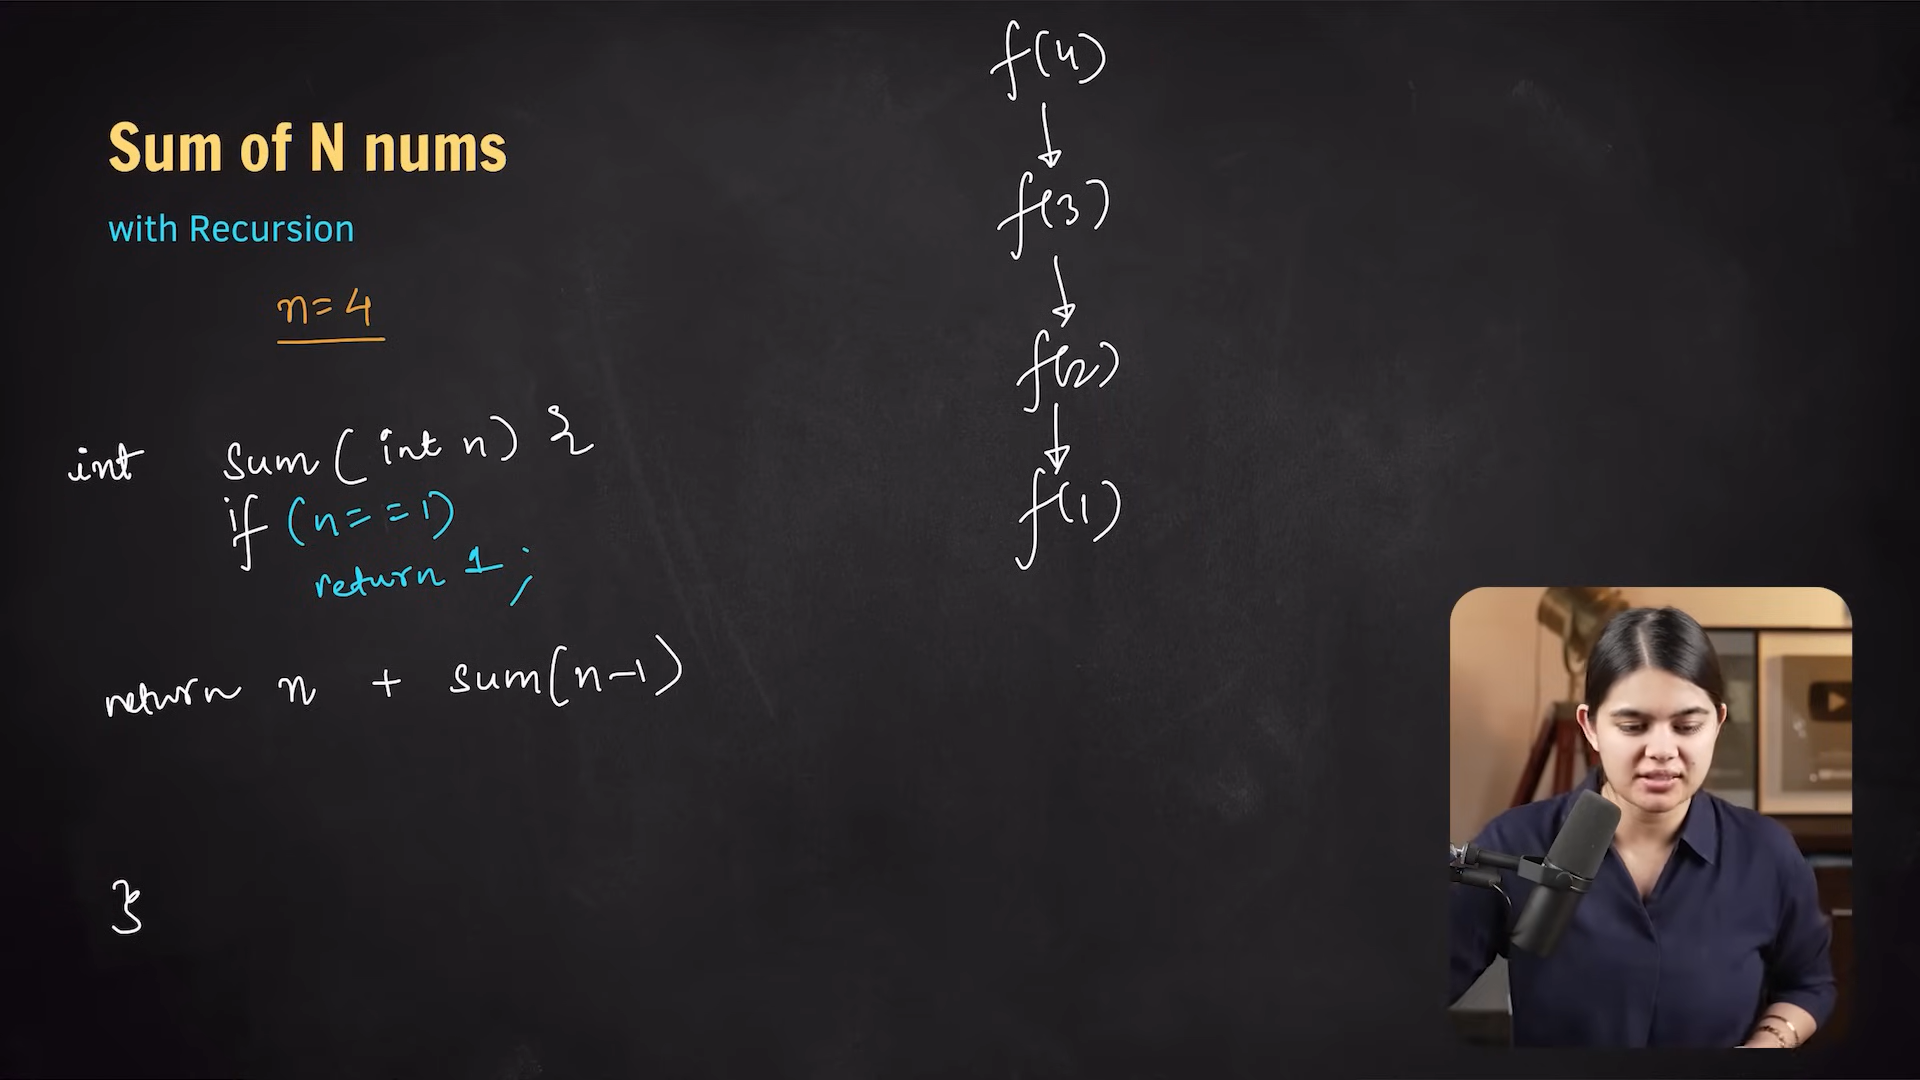 Sum of N nums
with Recursion
n=4
int sum(int n) {
if (n==1)
return 1;
return n + sum(n-1)
}
f(4)
f(3)
f(2)
f(1)